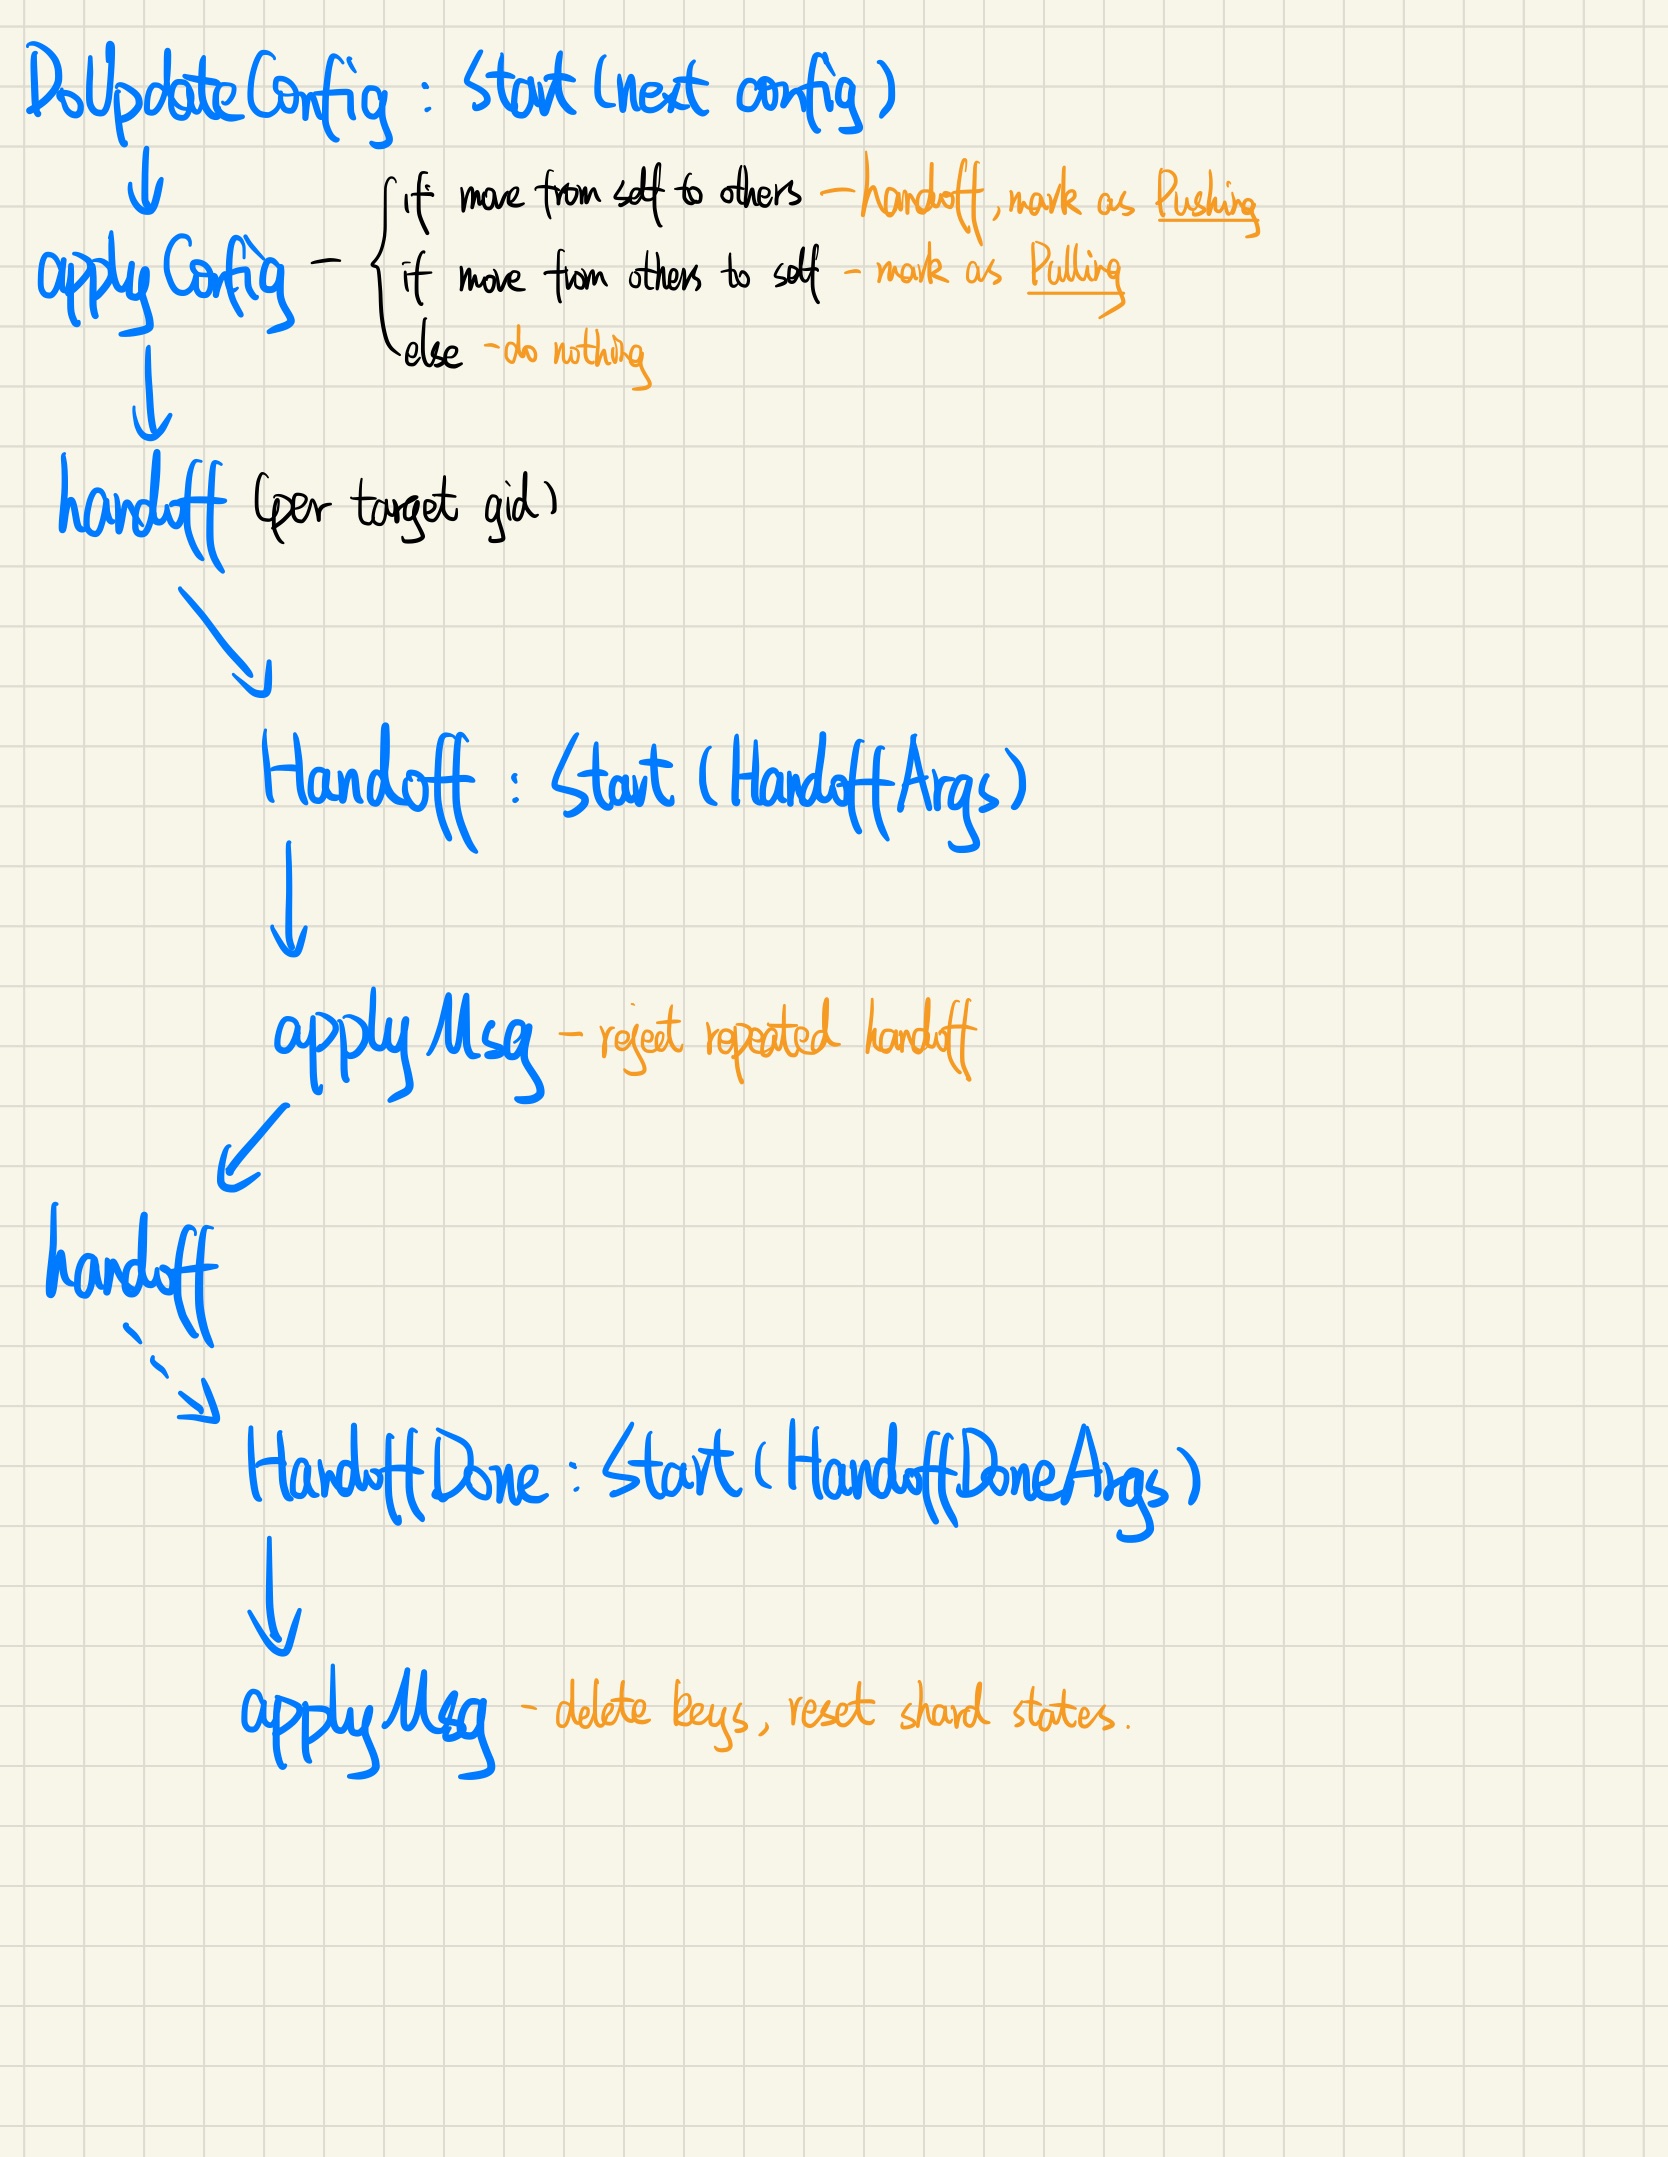 DoUpdateConfig : Start (next config)
if move from self to others - handoff, mark as Pushing
applyConfig - if move from others to self - mark as Pulling
else - do nothing
handoff (per target gid)
Handoff : Start (HandoffArgs)
applyMsg - reject repeated handoff
handoff
HandoffDone : Start (HandoffDoneArgs)
applyMsg - delete keys, reset shard states.